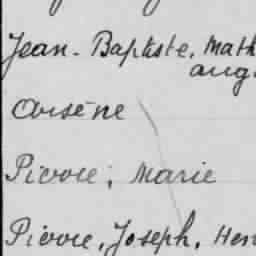 Jean-Baptiste, Math
aug.
Arsène
Pierre, Marie
Pierre, Joseph, Hen